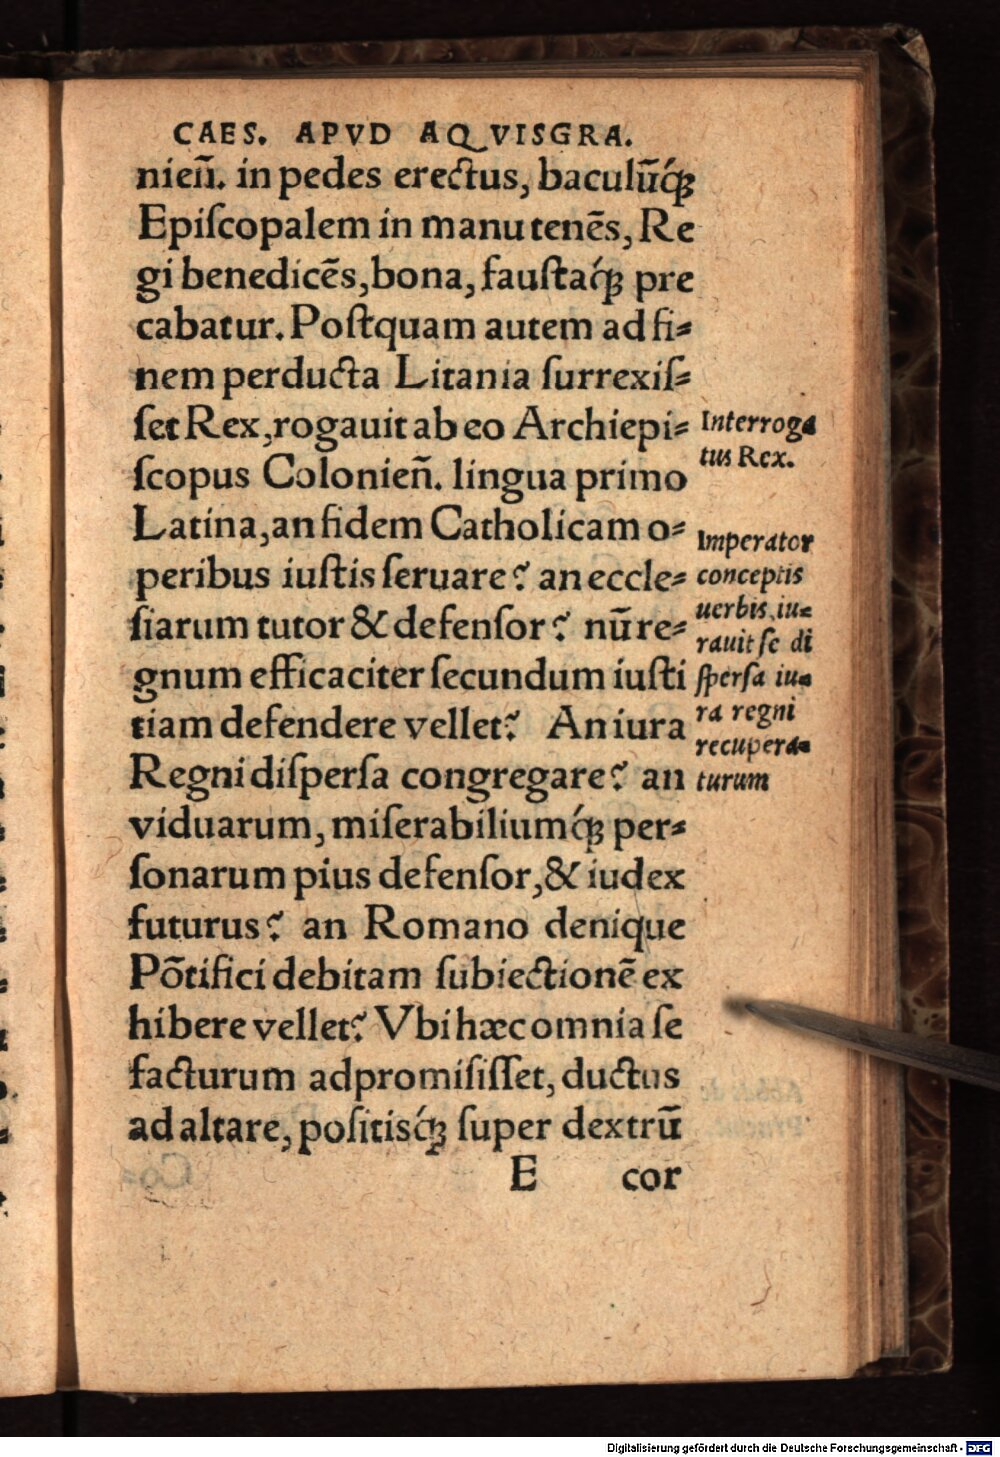 CAES. APVD AQVISGRA.
nieñ. in pedes erectus, baculūq́ꝫ
Epiſcopalem in manu tenēs, Re
gi benedicēs, bona, fauſtaq́ꝫ pre
cabatur. Poſtquam autem ad fi⸗
nem perducta Litania ſurrexiſ⸗
ſet Rex, rogauit ab eo Archiepi⸗
ſcopus Colonieñ. lingua primo
Latina, an fidem Catholicam o⸗
peribus iuſtis ſeruare? an eccle⸗
ſiarum tutor & defenſor? nūre⸗
gnum efficaciter ſecundum iuſti
tiam defendere vellet? An iura
Regni diſperſa congregare? an
viduarum, miſerabiliumq́ꝫ per⸗
ſonarum pius defenſor, & iudex
futurus? an Romano denique
Pōtifici debitam ſubiectionē ex
hibere vellet? Vbi hæc omnia ſe
facturum adpromiſiſſet, ductus
ad altare, poſitisq́ꝫ ſuper dextrū
E cor
Interroga
tus Rex.
Imperator
conceptis
uerbis, iu⸗
rauit ſe di
ſperſa iu⸗
ra regni
recupera⸗
turum
Digitalisierung gefördert durch die Deutsche Forschungsgemeinschaft - DFG